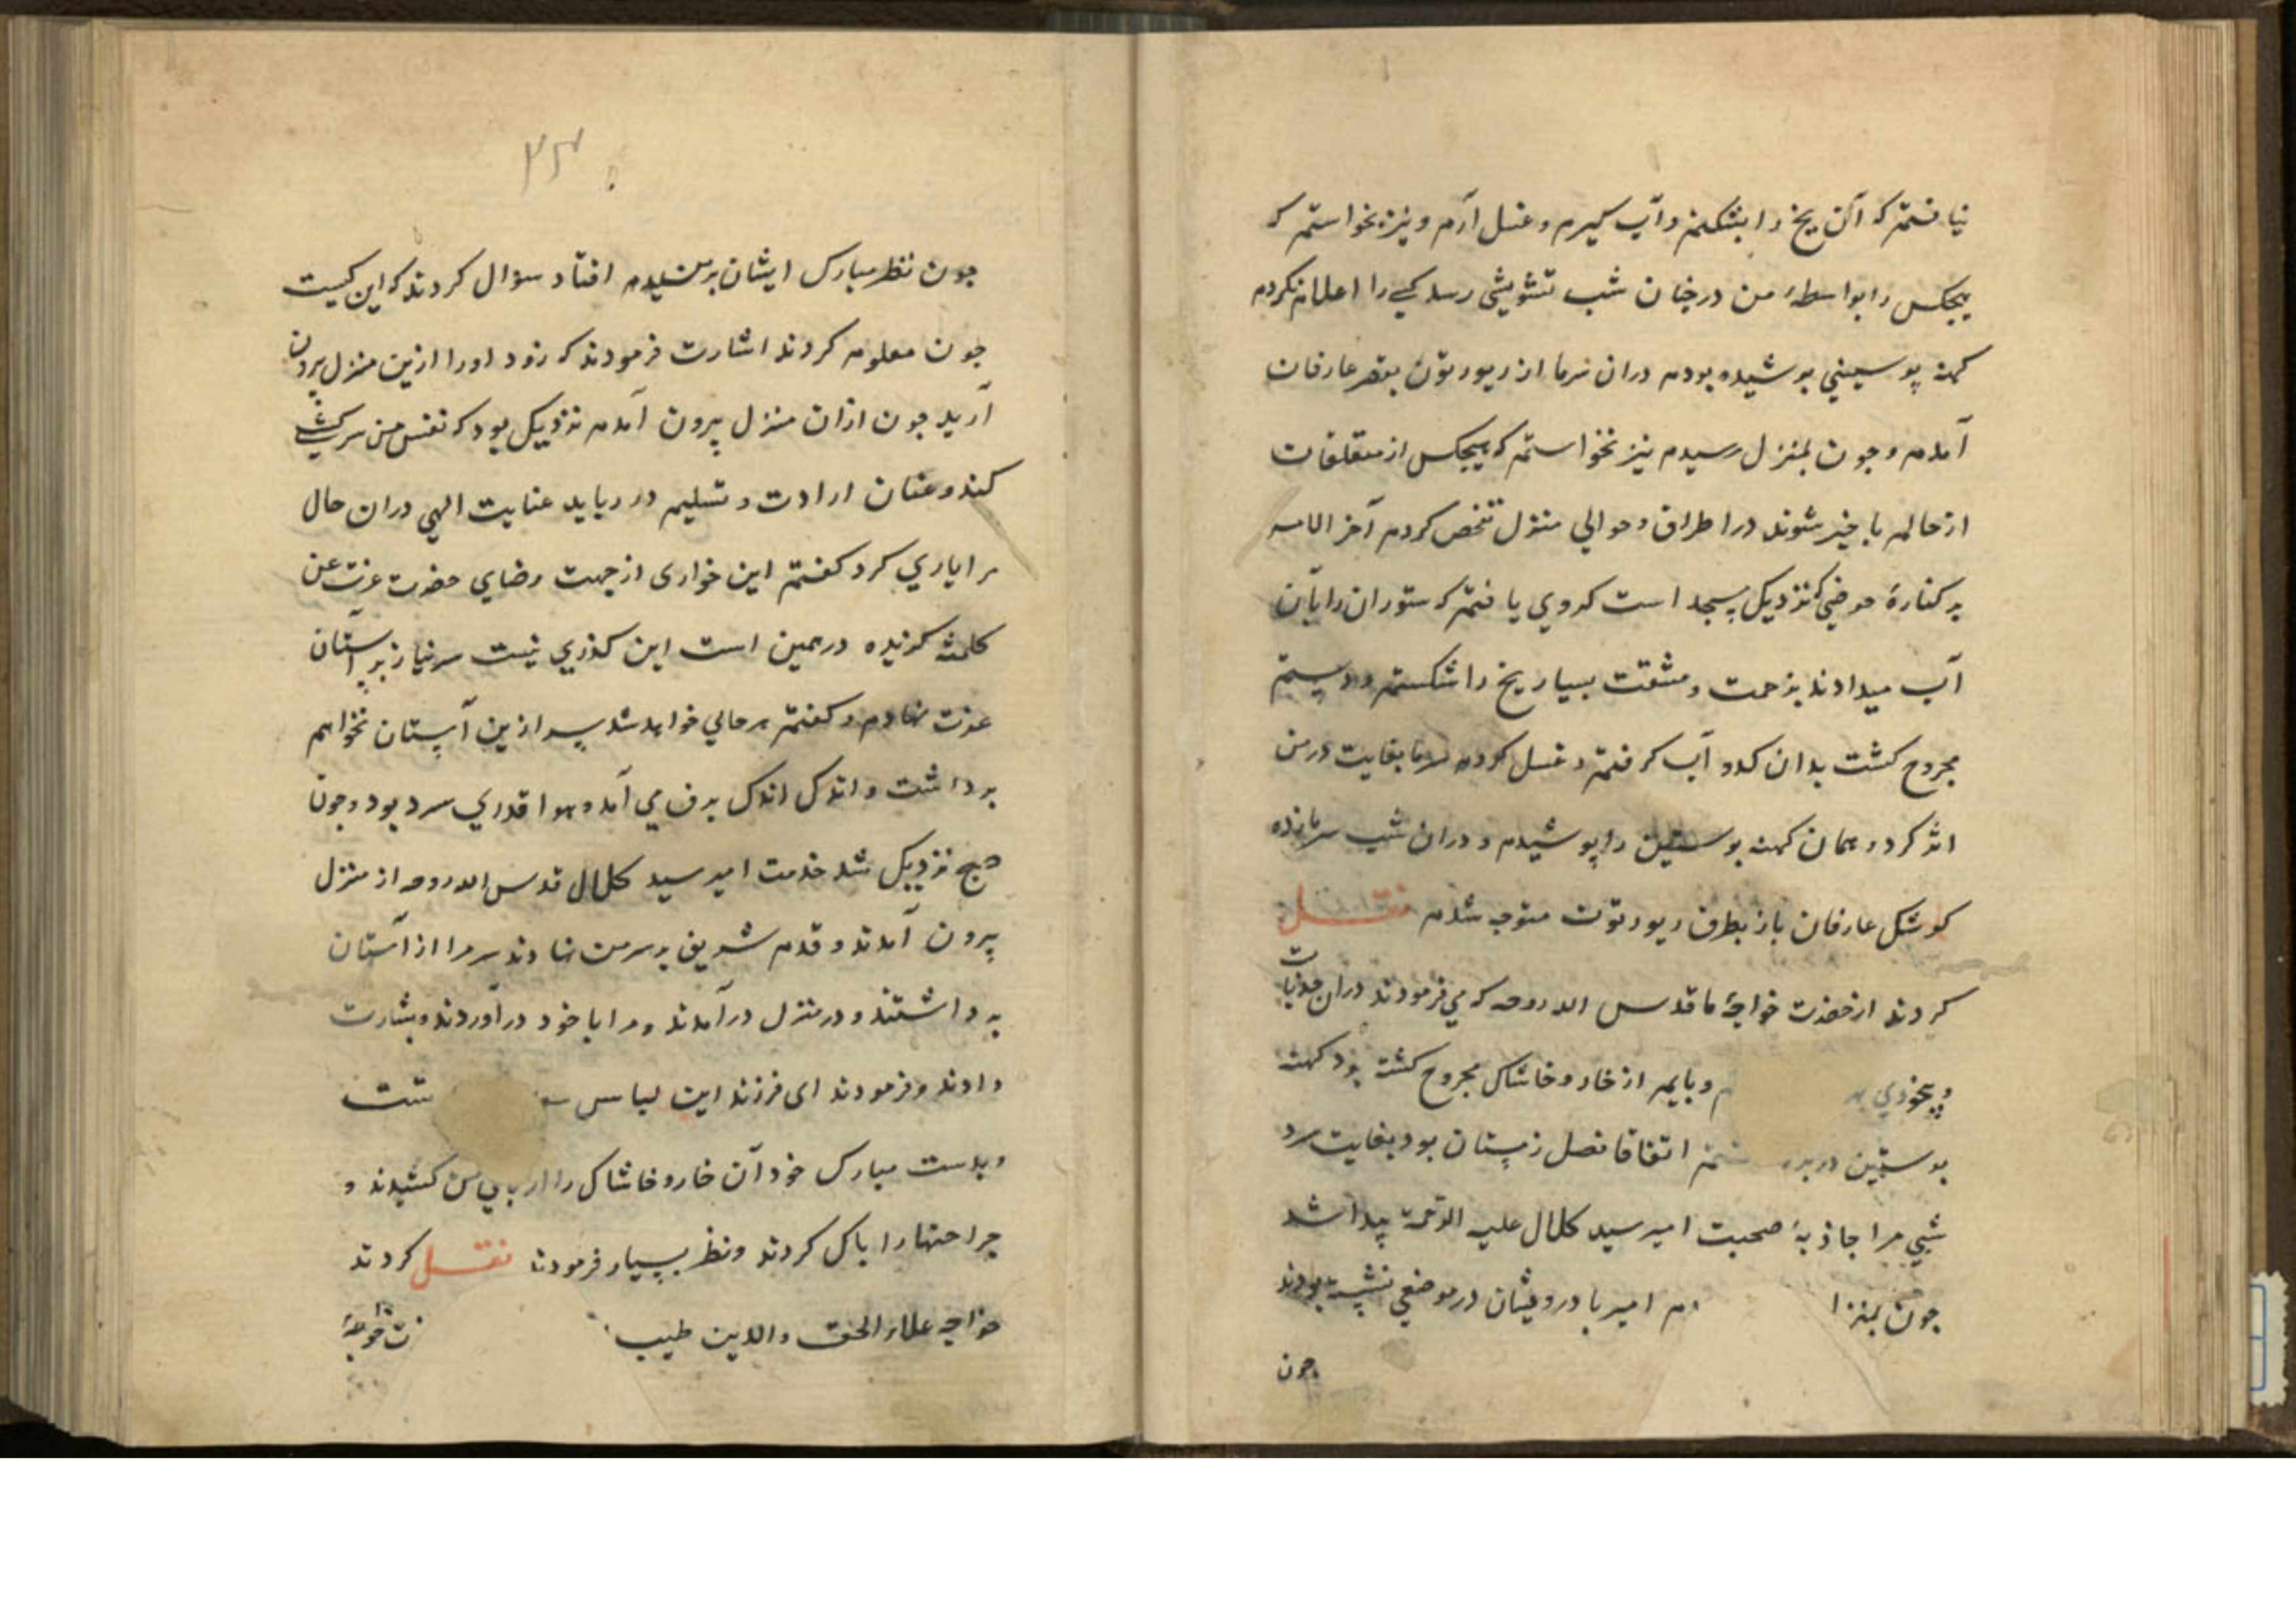 نیافتم که آن یخ را بشکنم و آب گیرم و غسل آرم و نیز نخواستم که
هیچکس را بواسطهٔ من در چنان شب تشویشی رسد کسی را اعلام نکردم
کهنه پوستینی پوشیده بودم در آن سرما از ریورتون بقصر عارفان
آمدم و چون بمنزل رسیدم نیز نخواستم که هیچکس از متعلقات
از حالم با خبر شوند در اطراف و حوالی منزل تفحص کردم آخر الامر
بر کنارهٔ حوضی که نزدیک مسجد است کدوی یافتم که ستوران را بآن
آب میدادند بزحمت و مشقت بسیار یخ را شکستم و دستم
مجروح گشت بدان کدو آب گرفتم و غسل کردم سرما بغایت در من
اثر کرد و همان کهنه پوستین را پوشیدم و در آن شب سرما زده
کوشک عارفان باز بطرف ریورتون متوجه شدم نقل
کردند از حضرت خواجهٔ ما قدس الله روحه که می فرمودند در آن جذبات
و بیخودی و پایم از خار و خاشاک مجروح گشته بود کهنه
پوستین در بر اتفاقا فصل زمستان بود بغایت سرد
شبی مرا جاذبهٔ صحبت امیر سید کلال علیه الرحمة پیدا شد
چون بمنزل امیر با درویشان در موضعی نشسته بودند
چون
۳۴
چون نظر مبارک ایشان بر من افتاد سؤال کردند که این کیست
چون معلوم کردند اشارت فرمودند که زود او را ازین منزل بیرون
آرید چون ازان منزل بیرون آمدم نزدیک بود که نفس من سرکشی
کند و عنان ارادت و تسلیم در رباید عنایت الهی در آن حال
مرا یاری کرد گفتم این خواری از جهت رضای حضرت عزت عن
کلمته درهمین است این گذری نیست سر نیاز بر آستان
عزت نهادم و گفتم هر حالی خواهد شد سر ازین آستان نخواهم
برداشت و اندک اندک برف می آمد و هوا قدری سرد بود و چون
صبح نزدیک شد خدمت امیر سید کلال قدس الله روحه از منزل
بیرون آمدند و قدم شریف بر سر من نهادند سر مرا از آستان
برداشتند و در منزل در آمدند و مرا با خود در آوردند و بشارت
دادند و فرمودند ای فرزند این لباس تست
و بدست مبارک خود آن خار و خاشاک را از پای من کشیدند و
جراحتها را پاک کردند و نظر بسیار فرمودند نقل کردند
خواجه علاء الحق والدین طیب خواجهٔ